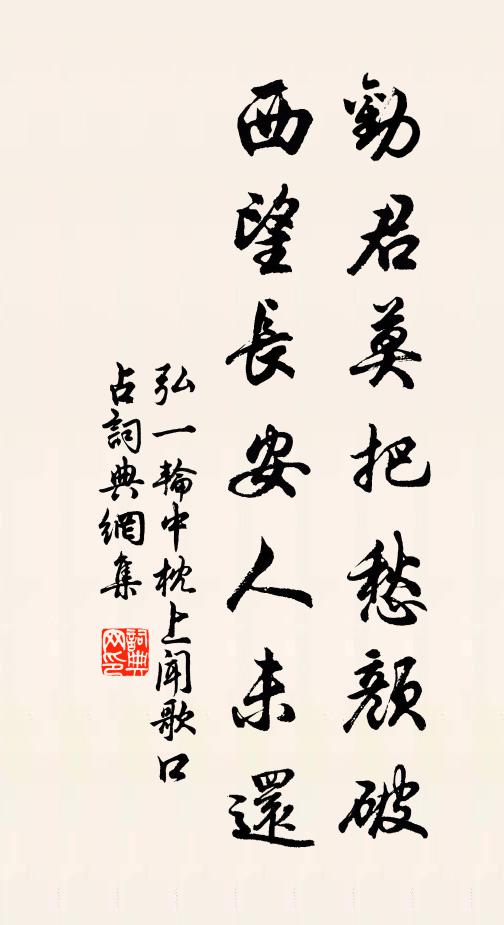 勸君莫把愁顏破
西望長安人未還
弘一輪中枕上聞歌口
占詞典網集
詞典
网印